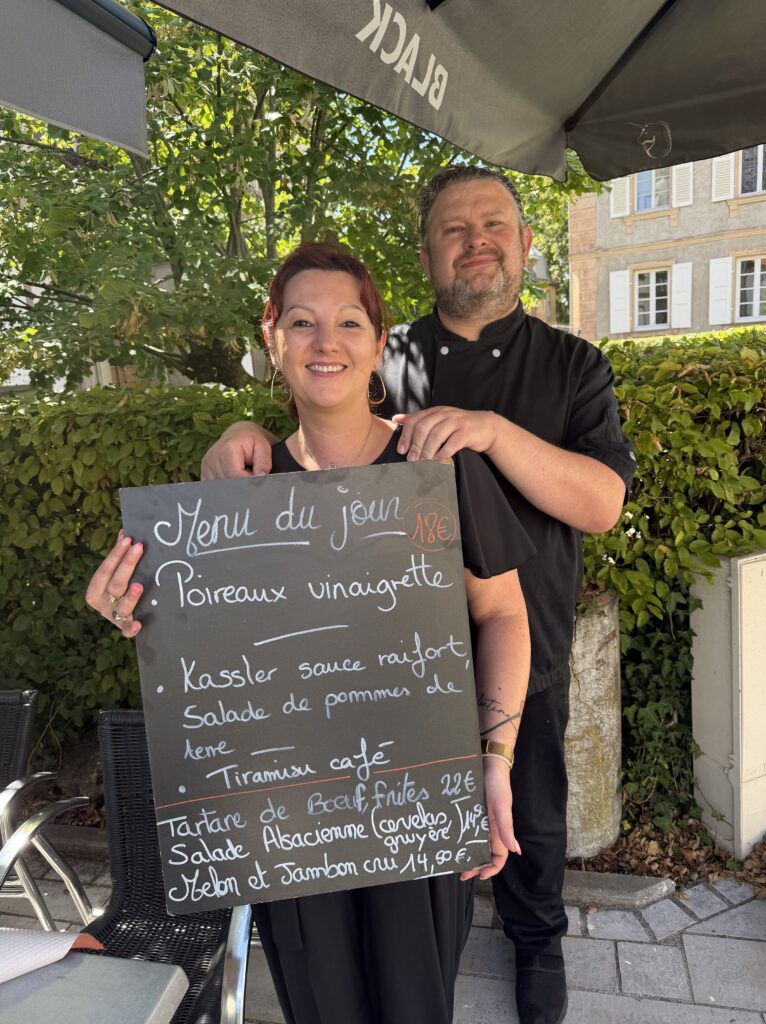 BLACK
Menu du jour 18€
• Poireaux vinaigrette
• Kassler sauce raifort,
Salade de pommes de
terre
• Tiramisu café
Tartare de Boeuf, frites 22€
Salade Alsacienne (cervelas, gruyère) 14,50€
Melon et Jambon cru 14,50€.